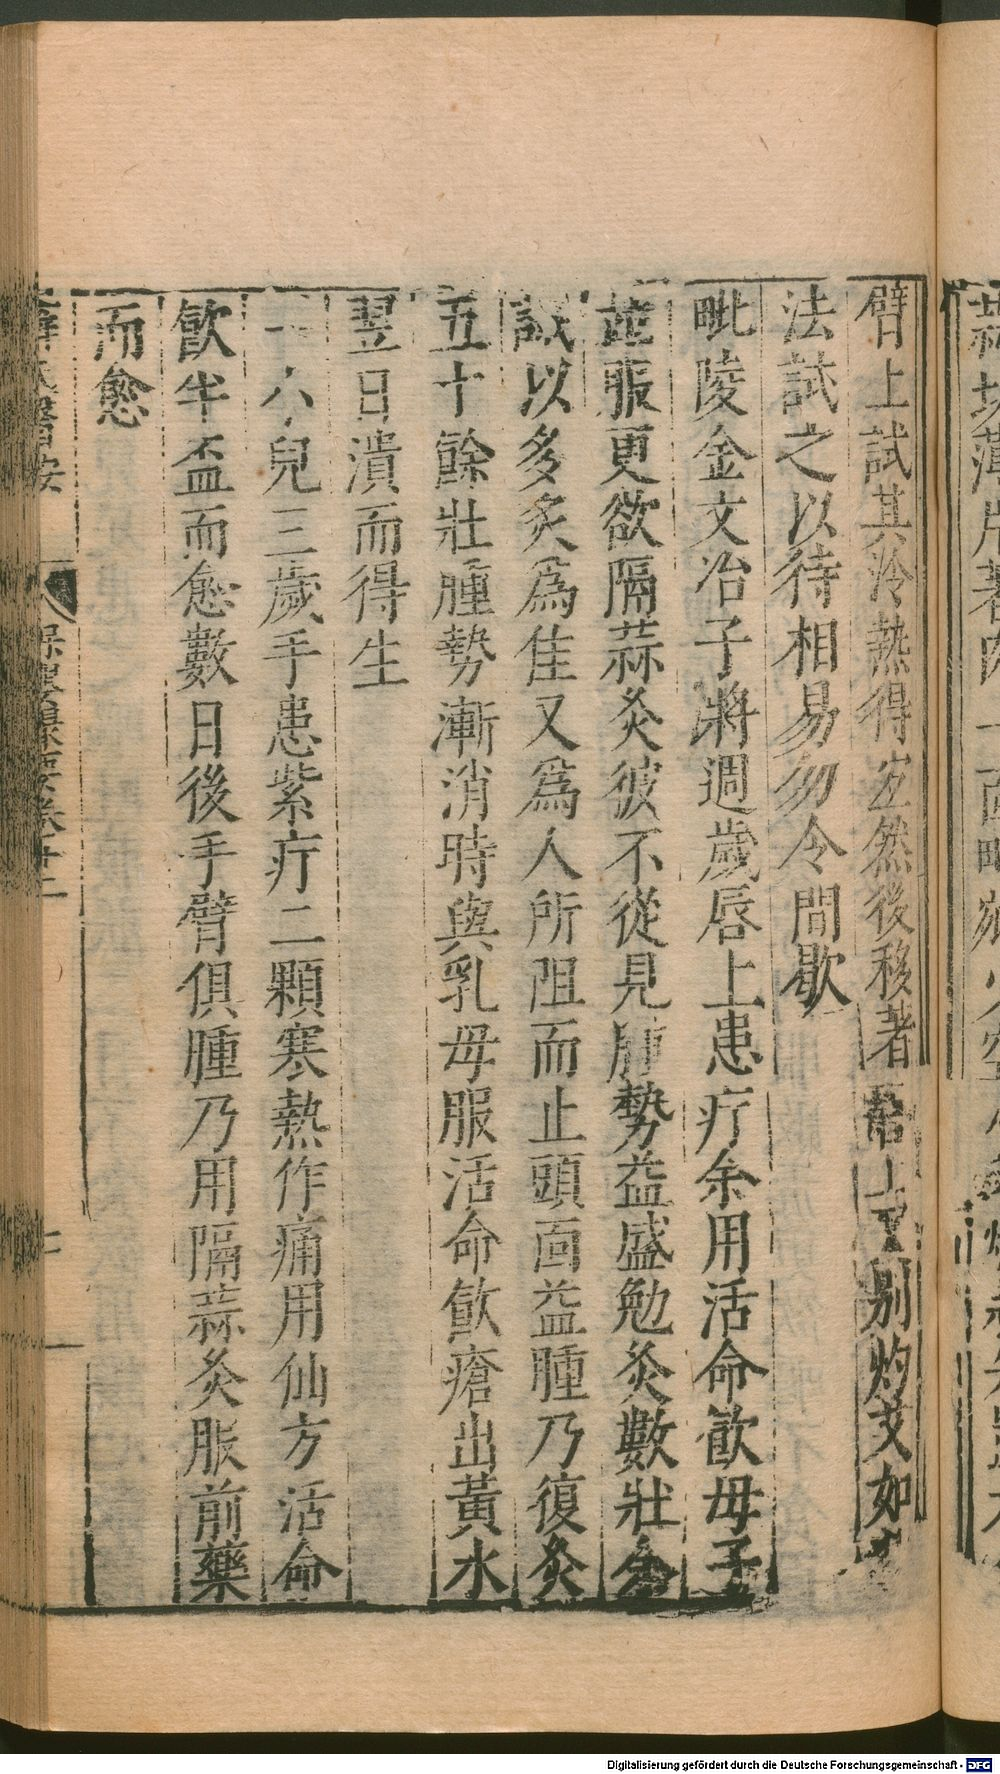 臂上試其冷熱得宜然後移著瘡上又別灼艾如
法試之以待相易勿令間歇
毗陵金文冶子將週歲唇上患疔余用活命飮母子
並服更欲隔蒜灸彼不從見腫勢益盛勉灸數壯余
試以多灸爲佳又爲人所阻而止頭面益腫乃復灸
五十餘壯腫勢漸消時與乳母服活命飮瘡出黃水
翌日潰而得生
一小兒三歲手患紫疔二顆寒熱作痛用仙方活命
飮半盃而愈數日後手臂俱腫乃用隔蒜灸服前藥
而愈
薛氏醫按 保嬰撮要卷十二
Digitalisierung gefördert durch die Deutsche Forschungsgemeinschaft - DFG